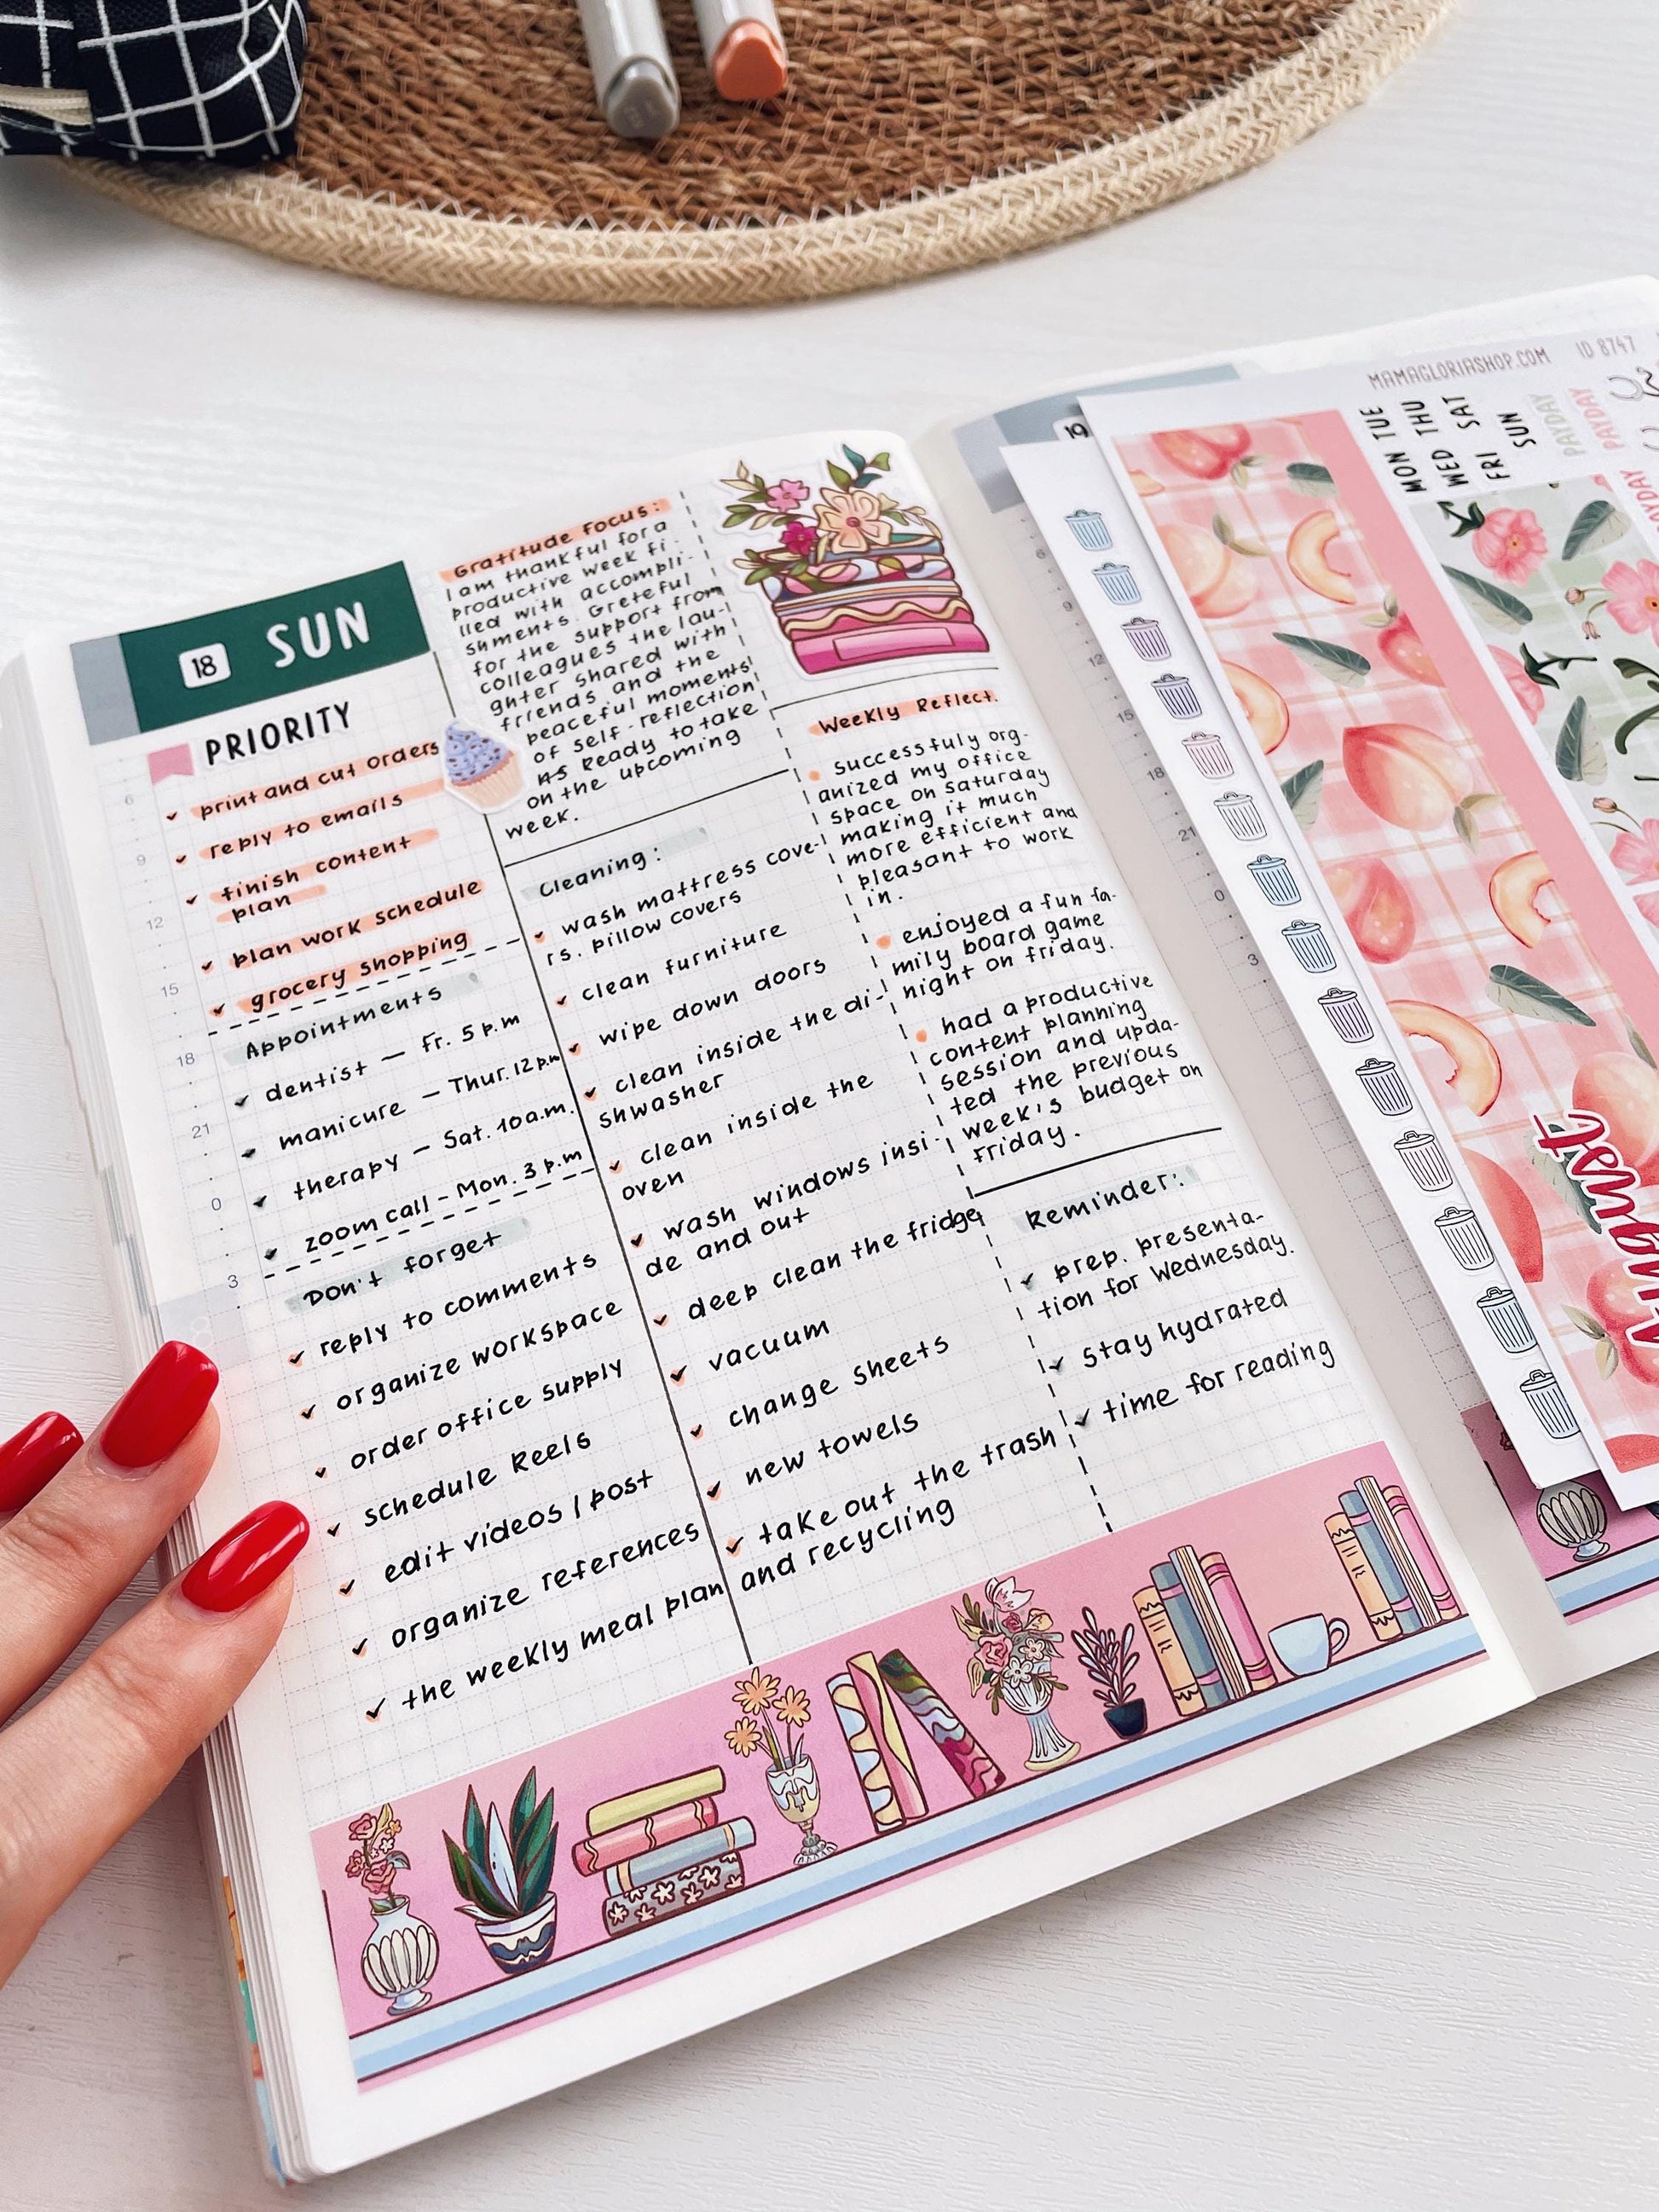 18 SUN
PRIORITY
print and cut orders
reply to emails
finish content
plan
plan work schedule
grocery shopping
Appointments
dentist – Fr. 5 p.m
manicure – Thur. 12 p.m
therapy – Sat. 10 a.m.
zoom call - Mon. 3 p.m
Don't forget
reply to comments
organize workspace
order office supply
schedule Reels
edit videos / post
organize references
the weekly meal plan
6
9
12
15
18
21
0
3
Gratitude Focus:
I am thankful for a
productive week fi-
lled with accompli-
shments. Greteful
for the support from
colleagues the lau-
ghter shared with
friends and the
peaceful moments
of self-reflection
Ready to take
on the upcoming
week.
Cleaning:
wash mattress cove-
rs. pillow covers
clean furniture
wipe down doors
clean inside the di-
shwasher
clean inside the
oven
wash windows insi-
de and out
deep clean the fridge
vacuum
change sheets
new towels
take out the trash
and recycling
Weekly Reflect.
successfuly org-
anized my office
space on saturday
making it much
more efficient and
pleasant to work
in.
enjoyed a fun fa-
mily board game
night on friday.
had a productive
content planning
session and upda-
ted the previous
week's budget on
Friday.
Reminder:
prep. presenta-
tion for Wednesday.
stay hydrated
time for reading
19
6
9
12
15
18
21
0
3
MAMAGLORIASHOP.COM ID 8747
MON TUE
WED THU
FRI SAT
SUN
PAYDAY
PAYDAY
August